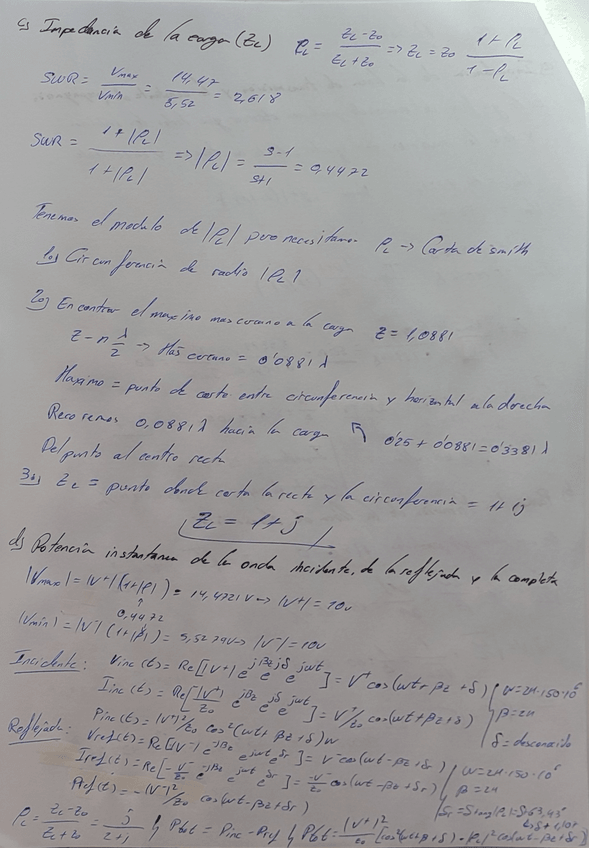 c) Impedancia de la carga (ZL) ρL = ZL-Z0 / ZL+Z0 => ZL = Z0 1+ρL / 1-ρL
SWR = Vmax / Vmin = 14,47 / 5,52 = 2,618
SWR = 1+|ρL| / 1+|ρL| => |ρL| = S-1 / S+1 = 0,4472
Tenemos el modulo de |ρL| pero necesitamos ρL -> Carta de smith
1o) Circunferencia de radio |ρL|
2o) Encontrar el maximo mas cercano a la carga Z = 1,0881
Z - n λ/2 -> Más cercano = 0'0881 λ
Maximo = punto de corte entre circunferencia y horizontal a la derecha
Recorremos 0,0881 λ hacia la carga 0'25 + 0'0881 = 0'3381 λ
Del punto al centro recta
3o) ZL = punto donde corta la recta y la circunferencia = 1+1j
ZL = 1+j
d) Potencia instantanea de la onda incidente, de la reflejada y la completa
|Vmax| = |V+| (1+|ρ|) = 14,4721V -> |V+| = 10V
0,4472
|Vmin| = |V-| (1+|ρ|) = 5,5279V -> |V-| = 10V
Incidente: Vinc(t) = Re[|V+| e^jβz e^jδ e^jωt] = V+ cos(ωt+βz+δ) ω=2π·150·10^6
Iinc(t) = Re[|V+|/Z0 e^jβz e^jδ e^jωt] = V+/Z0 cos(ωt+βz+δ) β=2π
Pinc(t) = |V+|²/Z0 cos²(ωt+βz+δ) W δ = desconocido
Reflejada: Vref(t) = Re[|V-| e^-jβz e^jωt e^δr] = V- cos(ωt-βz+δr)
Iref(t) = Re[-V-/Z0 e^-jβz e^jωt e^δr] = -V-/Z0 cos(ωt-βz+δr) ω=2π·150·10^6
Pref(t) = -|V-|²/Z0 cos(ωt-βz+δr) β=2π
ρL = ZL-Z0 / ZL+Z0 = j / 2+j Ptot = Pinc - Pref